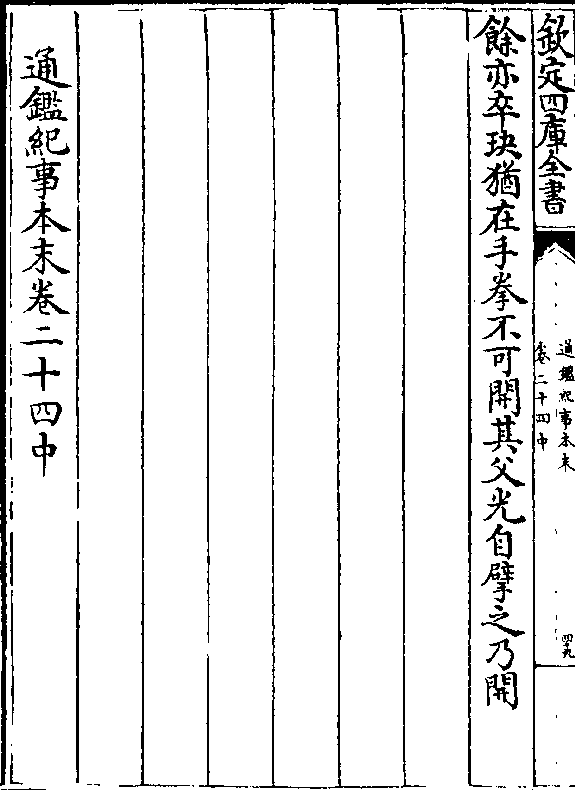 欽定四庫全書
通鑑紀事本末
卷二十四中
四九
餘亦卒玦猶在手拳不可開其父光自擘之乃開
通鑑紀事本末卷二十四中